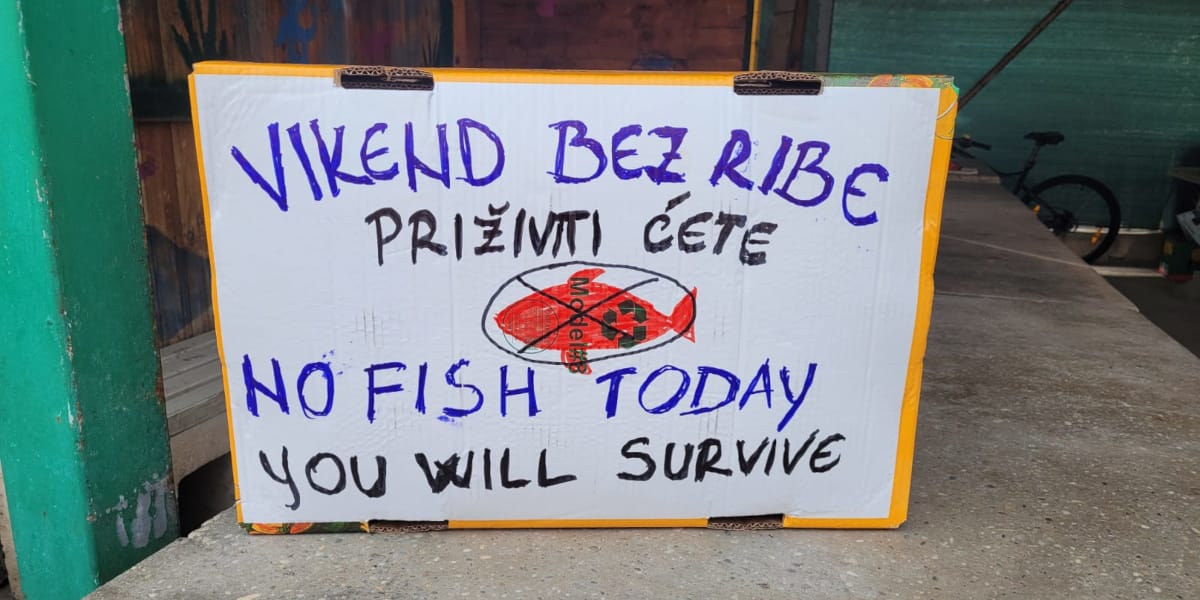 VIKEND BEZ RIBE
PRIŽIVITI ĆETE
Model:B
NO FISH TODAY
YOU WILL SURVIVE